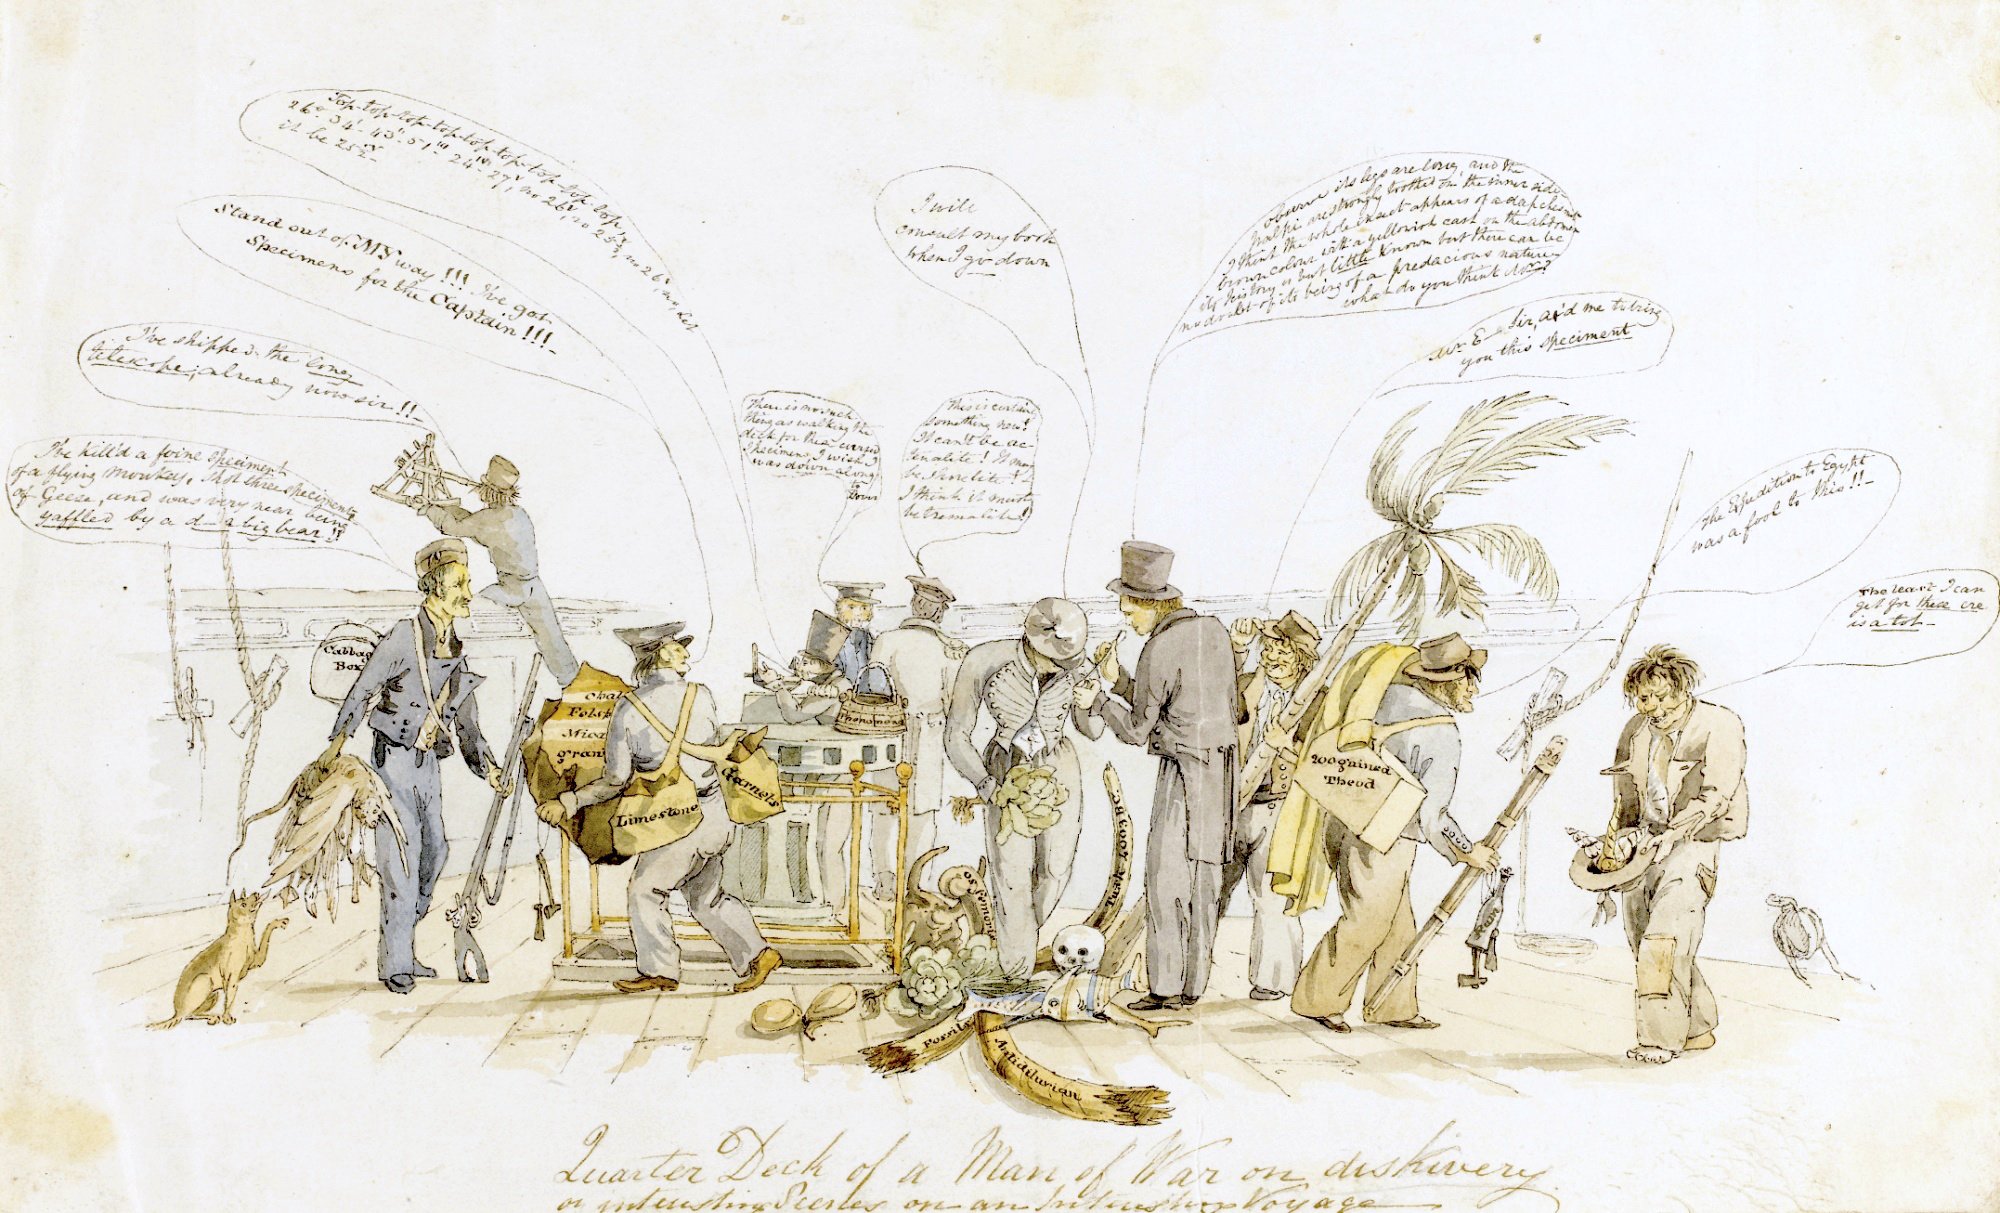 Top-top-top-top-top-top-top-top-top-top,
26°-34'-43"-51'''-24'''-27', no 26', no 25', no 26', no, let
it be 25½-
Stand out of MY way!!! I've got
Specimens for the Captain!!!-
I've shipped the long
telescope, already now sir!!-
I've kill'd a foine speciment
of a flying monkey, shot three speciments
of Geese, and was very near being
yaffled by a d—d big bear!!
There is no such
thing as walking the
deck for these cursed
Specimens, I wish I
was down along
to Dour
This is certainly
something new!
It can't be ac-
tinalite! It may
be
I think it must
be tremalite!
I will
consult my book
when I go down
observe its legs are long, and the
palpi are strongly toothed on the inner side
I think the whole insect appears of a dark chesnut
brown colour with a yellowish cast on the abdomen
its history is but little known but there can be
no doubt of its being of a predacious nature
what do you think Mr-?
Mr. E - Sir, ax'd me to bring
you this speciment
The Expedition to Egypt
was a fool to this!!-
The least I can
get for these ere
is a tot-
Cabbag
Box
Chal
Felsp
Mica
gran
Limestone
Garnets
Phenomena
os femoris
Tusk 100ft
Wogained
Theod
Fossils
Antidiluvian
Quarter Deck of a Man of War on diskivery
or intersting Scenes on an Intersting Voyage